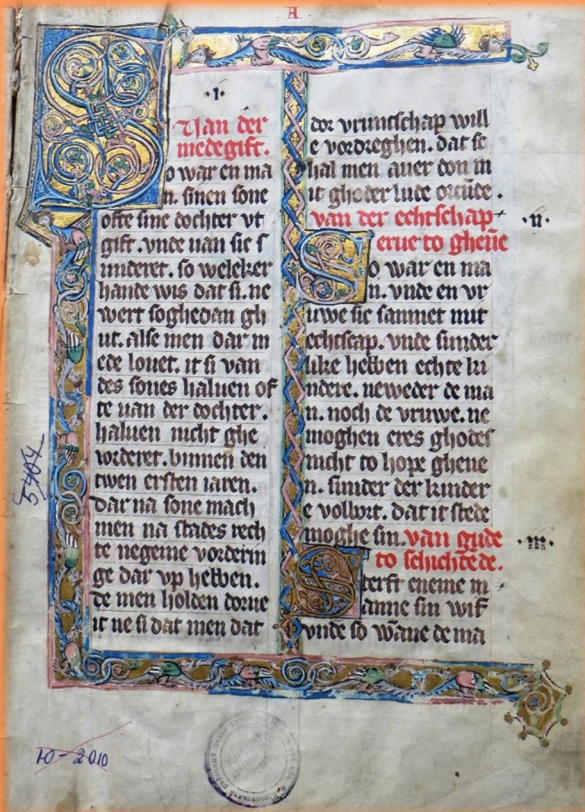 A
·I·
Uan der
medegift.
So war en ma
n. sinen sone
ofte sine dochter vt
gift. vnde uan sic s
underet. so weleker
hande wis dat si. ne
wert soghedan gh
ut. alse men dar m
ede louet. it si van
des sones haluen of
te uan der dochter.
haluen nicht ghe
vorderet. binnen den
twen ersten iaren.
dar na sone mach
men na stades rech
te negeine vorderin
ge dar vp hebben.
de men holden dorue
it ne si dat men dat
dor vruntschap will
e vordreghen. dat sc
hal men auer don m
it ghoder lude orcunde.
van der echtschap ·II·
erue to gheue
So war en ma
n. vnde en vr
uwe sic samnet mit
echtscap. vnde sunder
like hebben echte ki
ndere. neweder de ma
n. noch de vruwe. ne
moghen eres ghodes
nicht to hope gheue
n. sunder der kinder
e volbort. dat it stede
moghe sin. van gude ·III·
to schichtede.
Sterft eneme m
anne sin wif
vnde so wane de ma
5404
Ю-2010